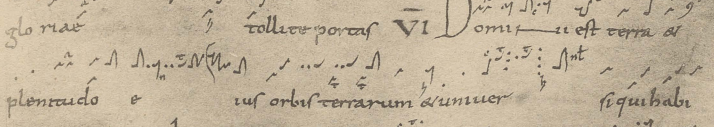 glo riae tollite portas VI Domi ni est terra &
plenitudo e ius orbis terrarum & univer si qui habi